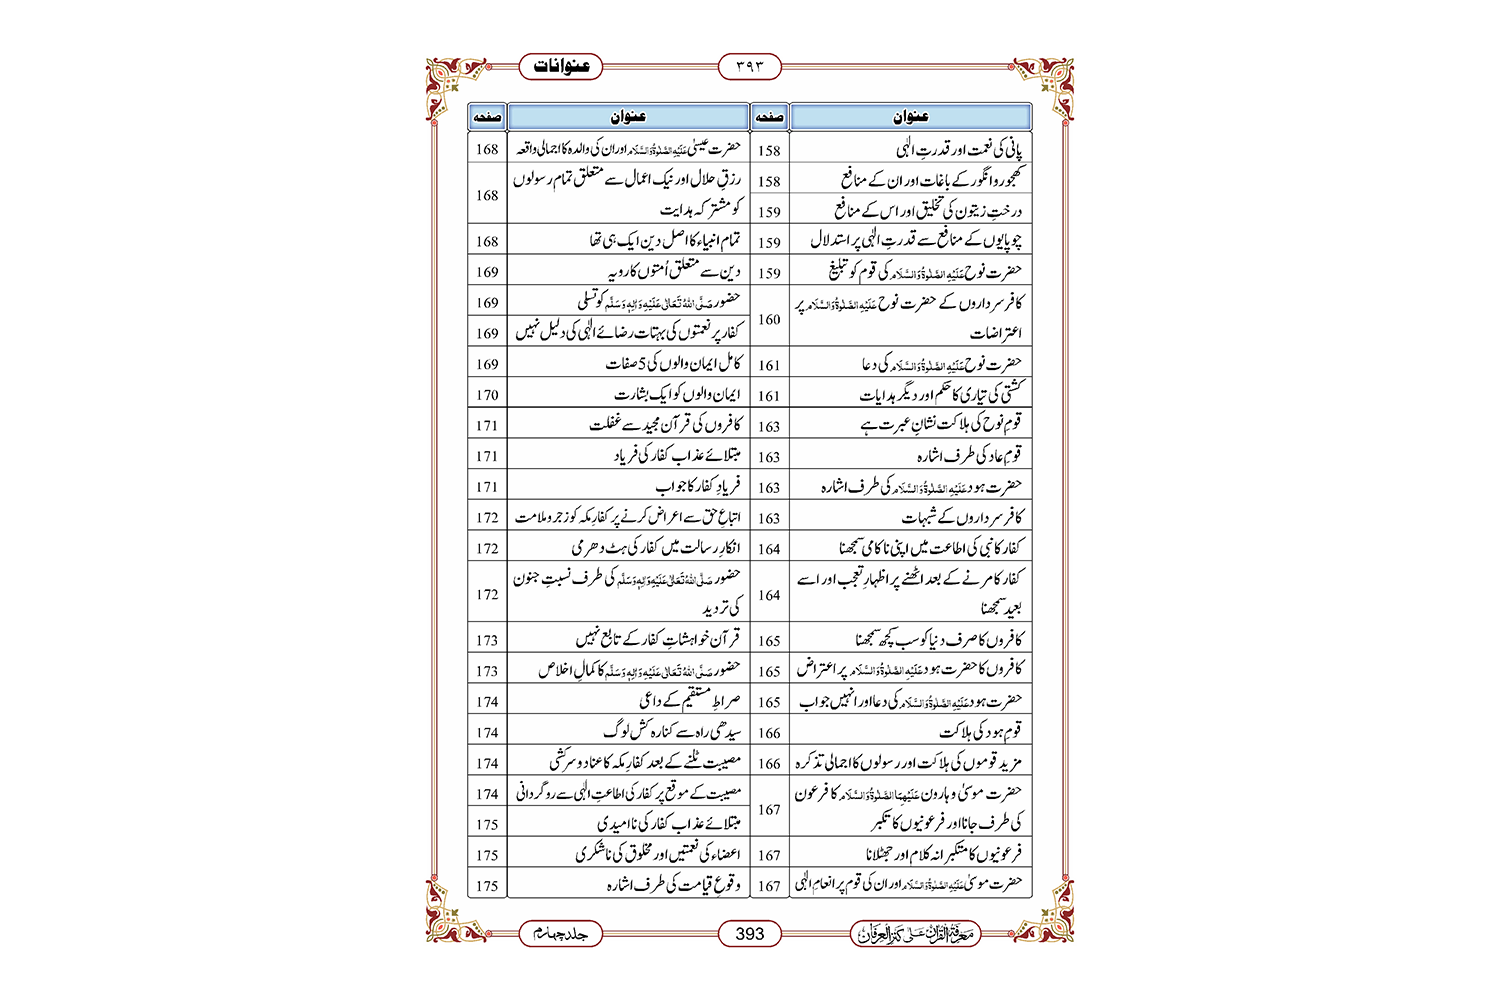 عنوانات
۳۹۳
عنوان صفحہ
پانی کی نعمت اور قدرتِ الٰہی 158
کھجور و انگور کے باغات اور ان کے منافع 158
درختِ زیتون کی تخلیق اور اس کے منافع 159
چوپایوں کے منافع سے قدرتِ الٰہی پر استدلال 159
حضرت نوح عَلَیْہِ الصَّلٰوۃُ وَالسَّلَام کی قوم کو تبلیغ 159
کافر سرداروں کے حضرت نوح عَلَیْہِ الصَّلٰوۃُ وَالسَّلَام پر
اعتراضات 160
حضرت نوح عَلَیْہِ الصَّلٰوۃُ وَالسَّلَام کی دعا 161
کشتی کی تیاری کا حکم اور دیگر ہدایات 161
قومِ نوح کی ہلاکت نشانِ عبرت ہے 163
قومِ عاد کی طرف اشارہ 163
حضرت ہود عَلَیْہِ الصَّلٰوۃُ وَالسَّلَام کی طرف اشارہ 163
کافر سرداروں کے شبہات 163
کفار کا نبی کی اطاعت میں اپنی ناکامی سمجھنا 164
کفار کا مرنے کے بعد اٹھنے پر اظہارِ تعجب اور اسے
بعید سمجھنا 164
کافروں کا صرف دنیا کو سب کچھ سمجھنا 165
کافروں کا حضرت ہود عَلَیْہِ الصَّلٰوۃُ وَالسَّلَام پر اعتراض 165
حضرت ہود عَلَیْہِ الصَّلٰوۃُ وَالسَّلَام کی دعا اور انہیں جواب 165
قومِ ہود کی ہلاکت 166
مزید قوموں کی ہلاکت اور رسولوں کا اجمالی تذکرہ 166
حضرت موسیٰ و ہارون عَلَیْہِمَا الصَّلٰوۃُ وَالسَّلَام کا فرعون
کی طرف جانا اور فرعونیوں کا تکبر 167
فرعونیوں کا متکبرانہ کلام اور جھٹلانا 167
حضرت موسیٰ عَلَیْہِ الصَّلٰوۃُ وَالسَّلَام اور ان کی قوم پر انعامِ الٰہی 167
عنوان صفحہ
حضرت عیسیٰ عَلَیْہِ الصَّلٰوۃُ وَالسَّلَام اور ان کی والدہ کا اجمالی واقعہ 168
رزقِ حلال اور نیک اعمال سے متعلق تمام رسولوں
کو مشترکہ ہدایت 168
تمام انبیاء کا اصل دین ایک ہی تھا 168
دین سے متعلق اُمتوں کا رویہ 169
حضور صَلَّی اللہُ تَعَالٰی عَلَیْہِ وَاٰلِہٖ وَسَلَّم کو تسلی 169
کفار پر نعمتوں کی بہتات رضائے الٰہی کی دلیل نہیں 169
کامل ایمان والوں کی 5 صفات 169
ایمان والوں کو ایک بشارت 170
کافروں کی قرآن مجید سے غفلت 171
مبتلائے عذاب کفار کی فریاد 171
فریادِ کفار کا جواب 171
اتباعِ حق سے اعراض کرنے پر کفارِ مکہ کو زجر و ملامت 172
انکارِ رسالت میں کفار کی ہٹ دھرمی 172
حضور صَلَّی اللہُ تَعَالٰی عَلَیْہِ وَاٰلِہٖ وَسَلَّم کی طرف نسبتِ جنون
کی تردید 172
قرآن خواہشاتِ کفار کے تابع نہیں 173
حضور صَلَّی اللہُ تَعَالٰی عَلَیْہِ وَاٰلِہٖ وَسَلَّم کا کمالِ اخلاص 173
صراطِ مستقیم کے داعی 174
سیدھی راہ سے کنارہ کش لوگ 174
مصیبت ٹلنے کے بعد کفارِ مکہ کا عناد و سرکشی 174
مصیبت کے موقع پر کفار کی اطاعتِ الٰہی سے روگردانی 174
مبتلائے عذاب کفار کی ناامیدی 175
اعضاء کی نعمتیں اور مخلوق کی ناشکری 175
وقوعِ قیامت کی طرف اشارہ 175
معرفۃ القرآن علیٰ کنز العرفان
393
جلد چہارم